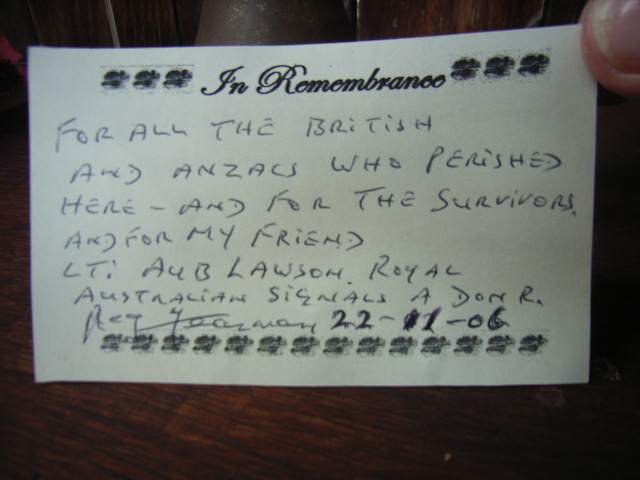 In Remembrance
FOR ALL THE BRITISH
AND ANZACS WHO PERISHED
HERE - AND FOR THE SURVIVORS.
AND FOR MY FRIEND
LT: AUB LAWSON. ROYAL
AUSTRALIAN SIGNALS A DON R.
Reg 22-11-06